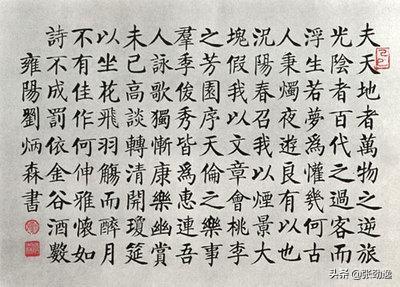 夫天地者萬物之逆旅
光陰者百代之過客而
浮生若夢為懽幾何古
人秉燭夜遊良有以也
況陽春召我以煙景大
塊假我以文章會桃李
之芳園序天倫之樂事
羣季俊秀皆為惠連吾
人詠歌獨慚康樂幽賞
未已高談轉清開瓊筵
以坐花飛羽觴而醉月
不有佳作何伸雅懷如
詩不成罰依金谷酒數
雍陽劉炳森書
头条 @张劲逸